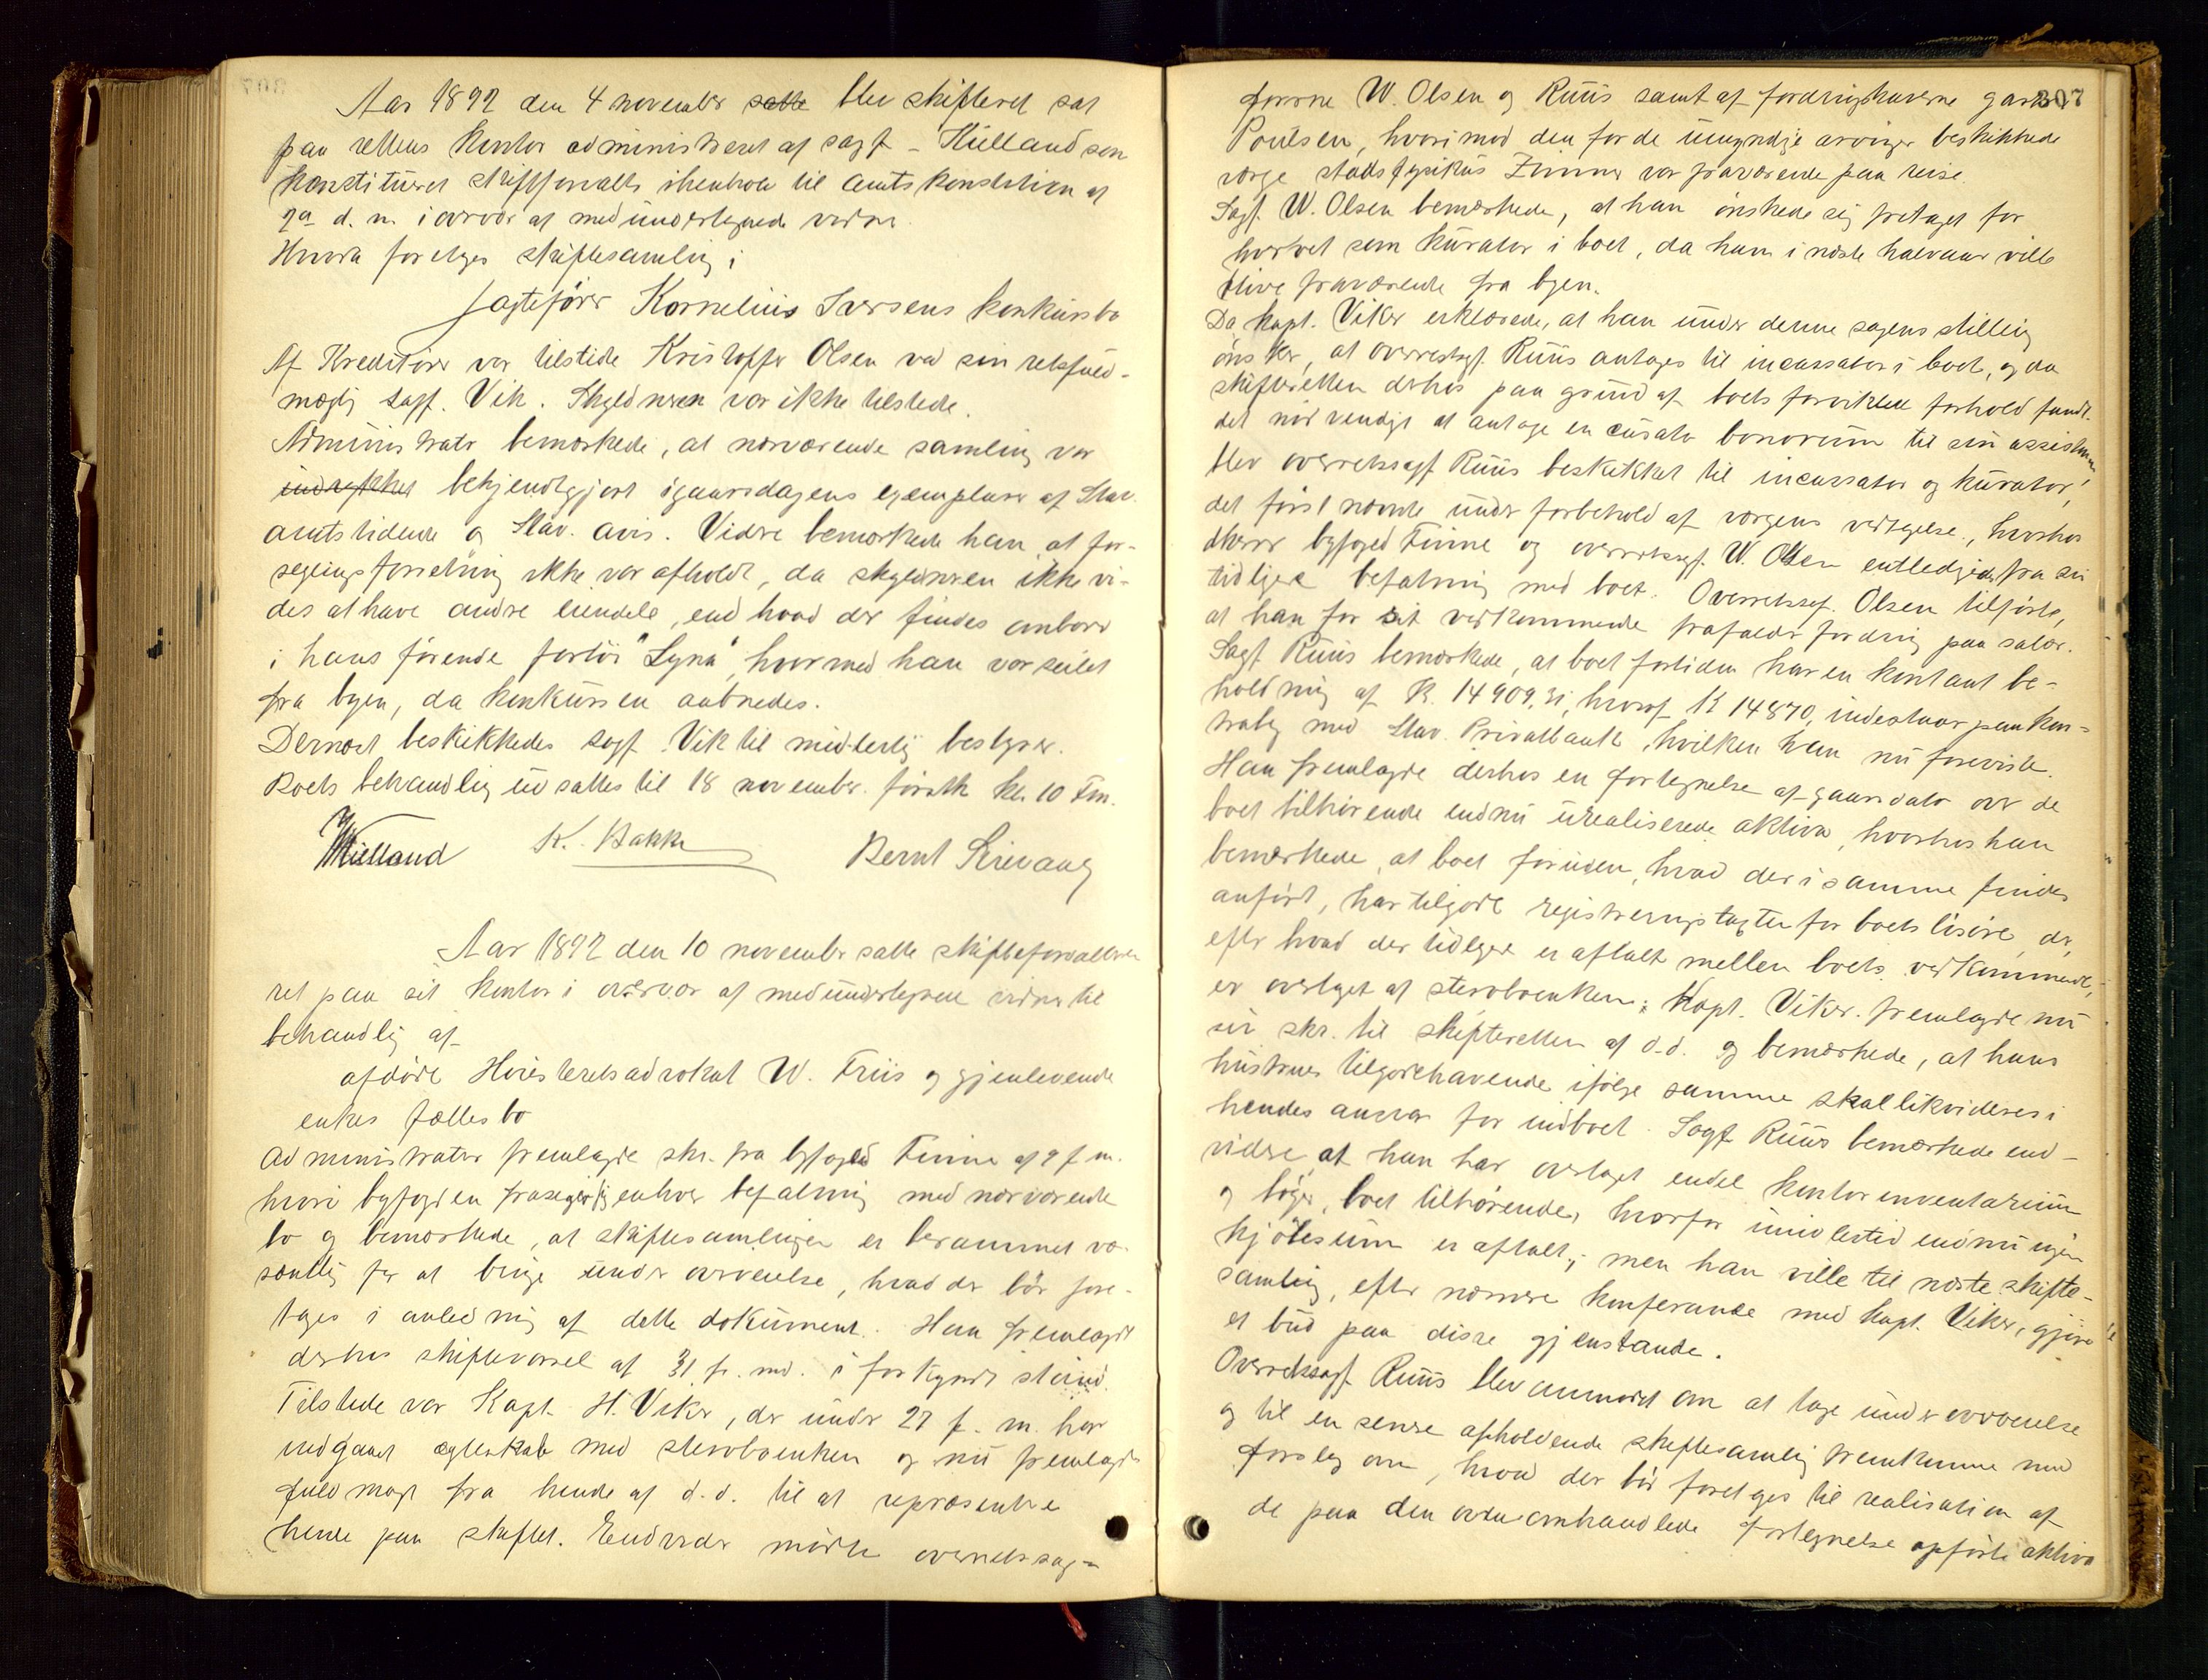 Aar 1892 den 4 november satte blev skifteret sat
paa rettens kontor administreret af sagf. Kielland som
konstitueret skifteforvalter ihenhold til amtskonstitution af
2den d. m. i overvær af medundertegnede vidner.
Hvorda foretoges skiftesamling i
Jagtefører Kornelius Iversens konkursbo
Af Kreditorer var tilstede Kristoffer Olsen ved sin retsfuld-
mægtig sagf. Vik. Skyldneren var ikke tilstede.
Administrator bemærkede, at nærværende samling var
indrykket bekjendtgjort igaarsdagens exemplarer af Stav.
amtstidende og Stav. avis. Videre bemærkede han, at for-
seglingsforretning ikke var afholdt, da skyldneren ikke vi-
des at have andre eiendele, end hvad der findes ombord
i hans førende fartøi "Lyna", hvormed han var seilet
fra byen, da konkursen aabnedes.
Dernæst beskikkedes sagf. Vik til midlertidig bestyrer.
Boets behandling udsattes til 18 november førstk. kl. 10 Fm.
Kielland K. Bakke Bernt Sirevaag
Aar 1892 den 10 november satte skifteforvalteren
ret paa sit kontor i overvær af medundertegnede vidner til
behandling af
afdøde Høiesteretsadvokat W. Friis og gjenlevende
enkes fællesbo
Administrator fremlagde skr. fra byfoged Finne af 9 f. m.
hvori byfogden frasiger sig enhver befatning med nærværende
bo og bemærkede, at skiftesamlingen er berammet væ-
sentlig for at bringe under overveielse, hvad der bør fore-
tages i anledning af dette dokument. Han fremlagde
derhos skiftevarsel af 31 f. md. i forkyndt stand.
Tilstede var Kapt. H. Viker, der under 27 f. m. har
indgaaet ægteskab med sterboenken og nu fremlagde
fuldmagt fra hende af d. d. til at repræsentere
hende paa skiftet. Endvidere mødte overretssag-
307
førerne W. Olsen og Ruus samt af fordringshaverne garver
Poulsen, hvorimod den for de umyndige arvinger beskikkede
værge stadsfysikus Zimmer var fraværende paa reise.
Sagf. W. Olsen bemærkede, at han ønskede sig fritaget for
hvervet som kurator i boet, da han i næste halvaar ville
blive fraværende fra byen.
Da kapt. Viker erklærede, at han under denne sagens stilling
ønsker, at overretssagf. Ruus antages til incassator i boet, og da
skifteretten derhos paa grund af boets forviklede forhold fandt
det nødvendigt at antage en curator bonorum til sin assistance,
blev overretssagf. Ruus beskikket til incassator og kurator,
det først nævnte under forbehold af værgens vedtagelse, hvorhos
derover byfoged Finne og overretssagf. W. Olsen entledigedes fra sin
tidligere befatning med boet. Overretssagf. Olsen tilførte,
at han for sit vedkommende frafaldt fordring paa salær.
Sagf. Ruus bemærkede, at boet fortiden har en kontant be-
holdning af K. 14909,31, hvoraf K 14870, indestaar paa kon-
trabog med Stav. Privatbank, hvilken han nu foreviste.
Han fremlagde derhos en fortegnelse af gaarsdato over de
boet tilhørende endnu urealiserede aktiva, hvorhos han
bemærkede, at boet foruden, hvad der i samme findes
anført, har tilgode registreringstaxten for boets løsøre, der,
efter hvad der tidligere er aftalt mellem boets vedkommende,
er overtaget af sterboenken. Kapt. Viker fremlagde nu
sin skr. til skifteretten af d. d. og bemærkede, at hans
hustrues tilgodehavende ifølge samme skal likvideres i
hendes ansvar for indboet. Sagf. Ruus bemærkede end-
videre, at han har overtaget endel kontorinventarium
og bøger, boet tilhørende, hvorfor imidlertid endnu ingen
kjøbesum er aftalt; men han ville til næste skifte-
samling, efter nærmere konferance med kapt. Viker, gjøre
et bud paa disse gjenstande.
Overretssagf. Ruus blev anmodet om at tage under overveielse
og til en senere afholdende skiftesamling fremkomme med
forslag om, hvad der bør foretages til realisation af
de paa den ovenomhandlede fortegnelse opførte aktiva